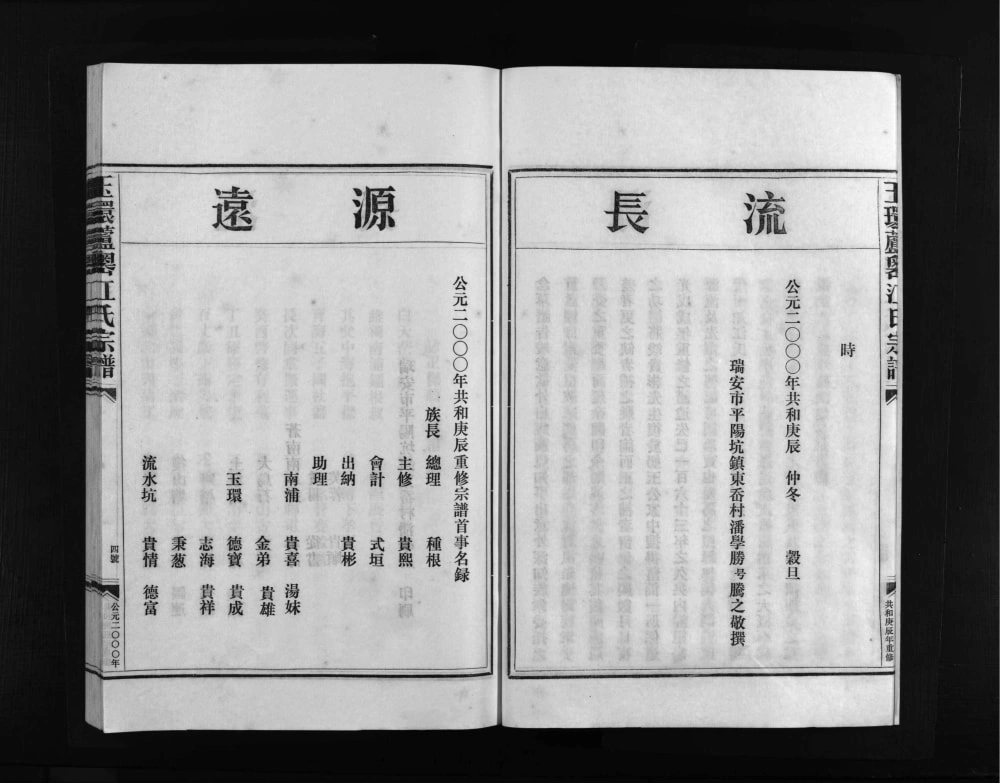 流長
時
公元二〇〇〇年共和庚辰 仲冬 穀旦
瑞安市平陽坑鎮東岙村潘學勝号騰之敬撰
共和庚辰年重修
源遠
公元二〇〇〇年共和庚辰重修宗譜首事名録
族長 總理 種根
主修 貴熙
會計 式垣
出納 貴彬
助理
南浦 貴喜 湯妹
金弟 貴雄
玉環 德寶 貴成
志海 貴祥
秉葱
流水坑 貴情 德富
玉環蘆岙江氏宗譜
四號
公元二〇〇〇年